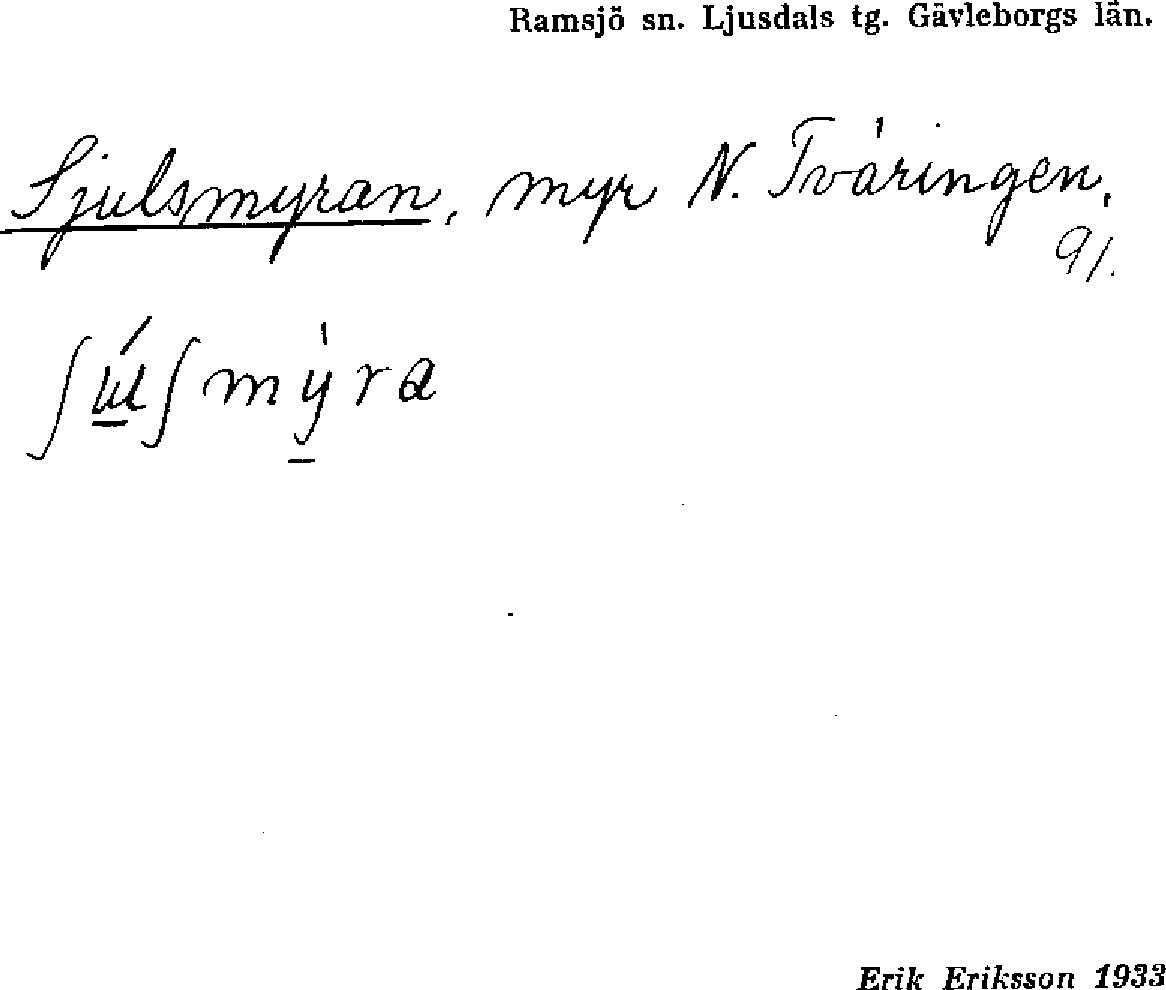 Ramsjö sn. Ljusdals tg. Gävleborgs län.
Sjulsmyran, myr N. Tväringen,
91.
ʃʉ́lʃmỳra
Erik Eriksson 1933